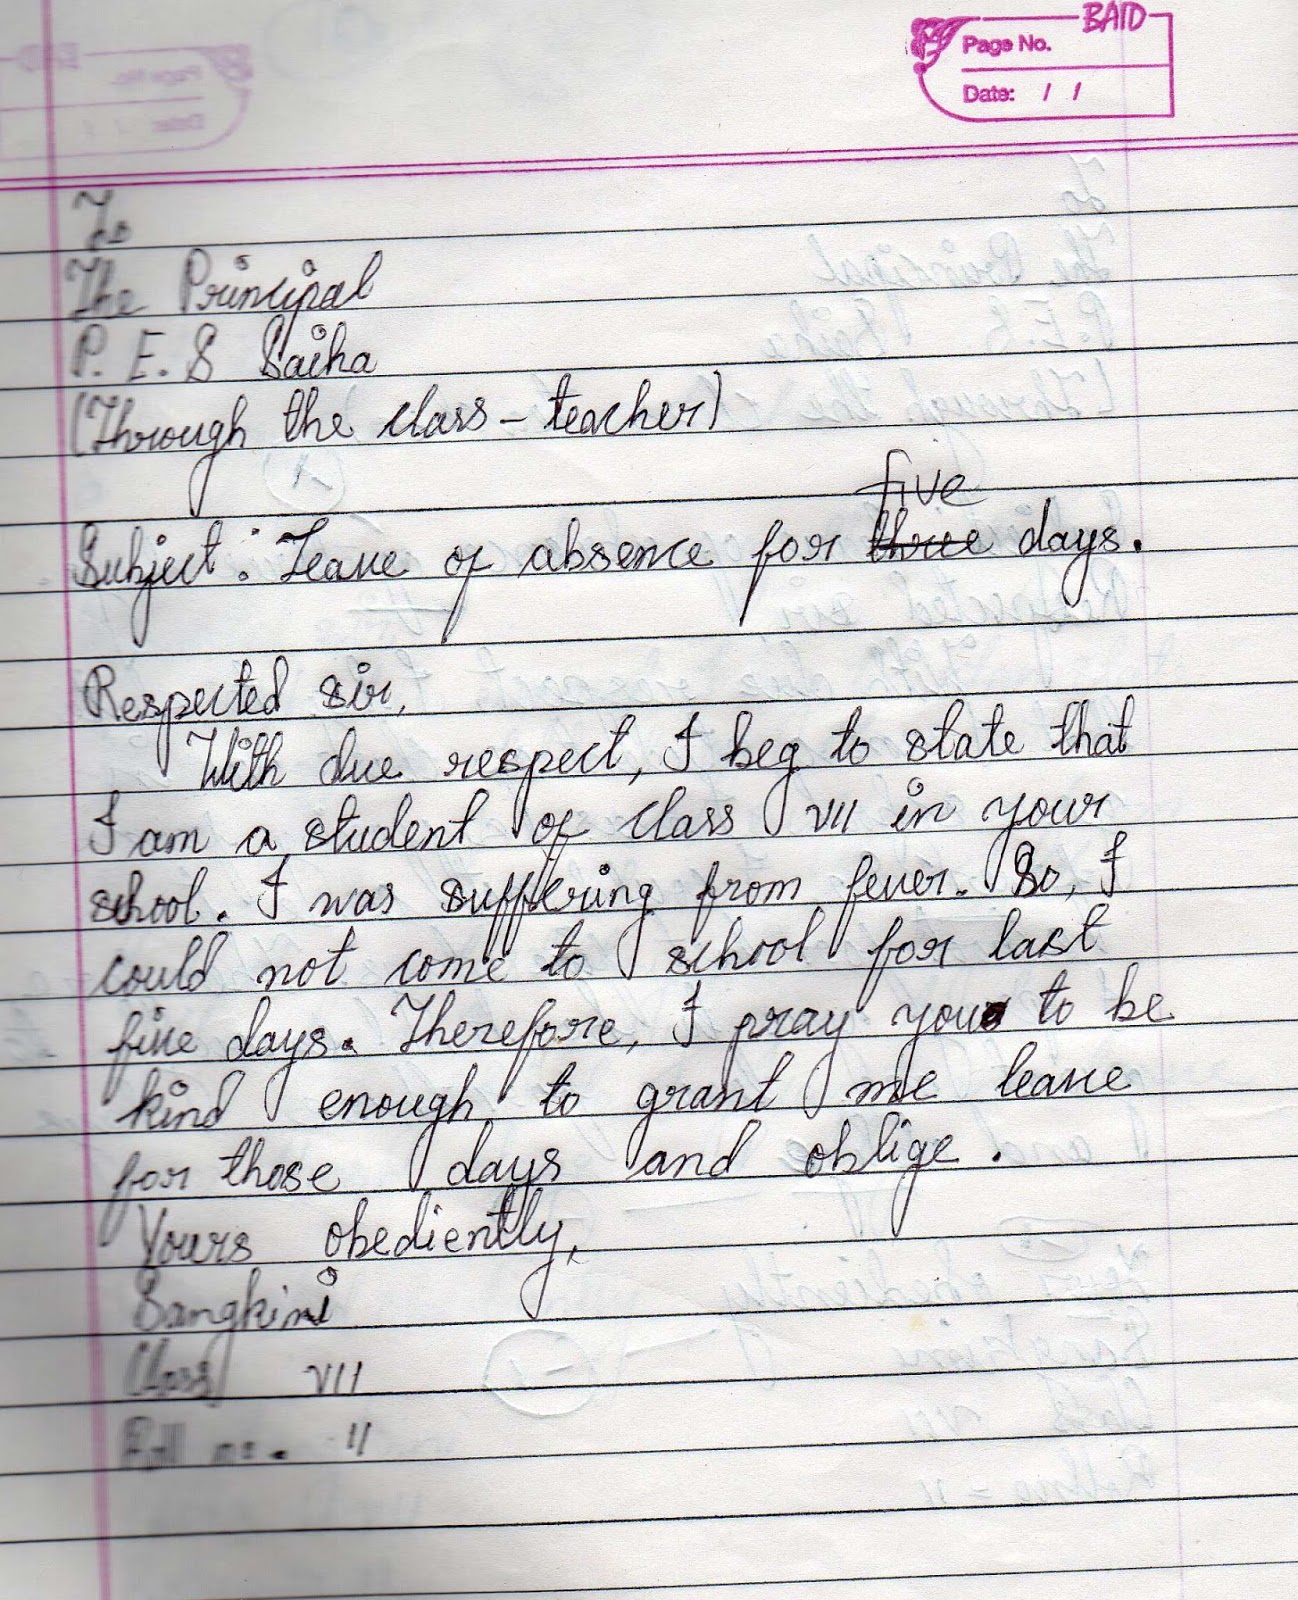 BAID
Page No.
Date: / /
To
The Principal
P. E. S Saiha
(Through the class - teacher)
five
Subject : Leave of absence for three days.
Respected sir,
With due respect, I beg to state that
I am a student of class VII in your
school. I was suffering from fever. So, I
could not come to school for last
five days. Therefore, I pray you to be
kind enough to grant me leave
for those days and oblige.
Yours obediently,
Sangkimi
Class VII
Roll no. 11